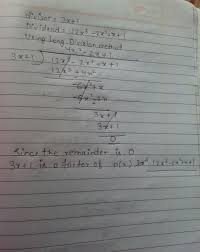 divisor = 3x+1
Dividend = 12x³-2x²+x+1
Using Long Division method
4x²-2x+1
3x+1 ) 12x³-2x²+x+1
12x³+4x²
-6x²+x
-6x²-2x
3x+1
3x+1
0
Since the remainder is 0
3x+1 is a factor of p(x) 12x³-2x²+x+1